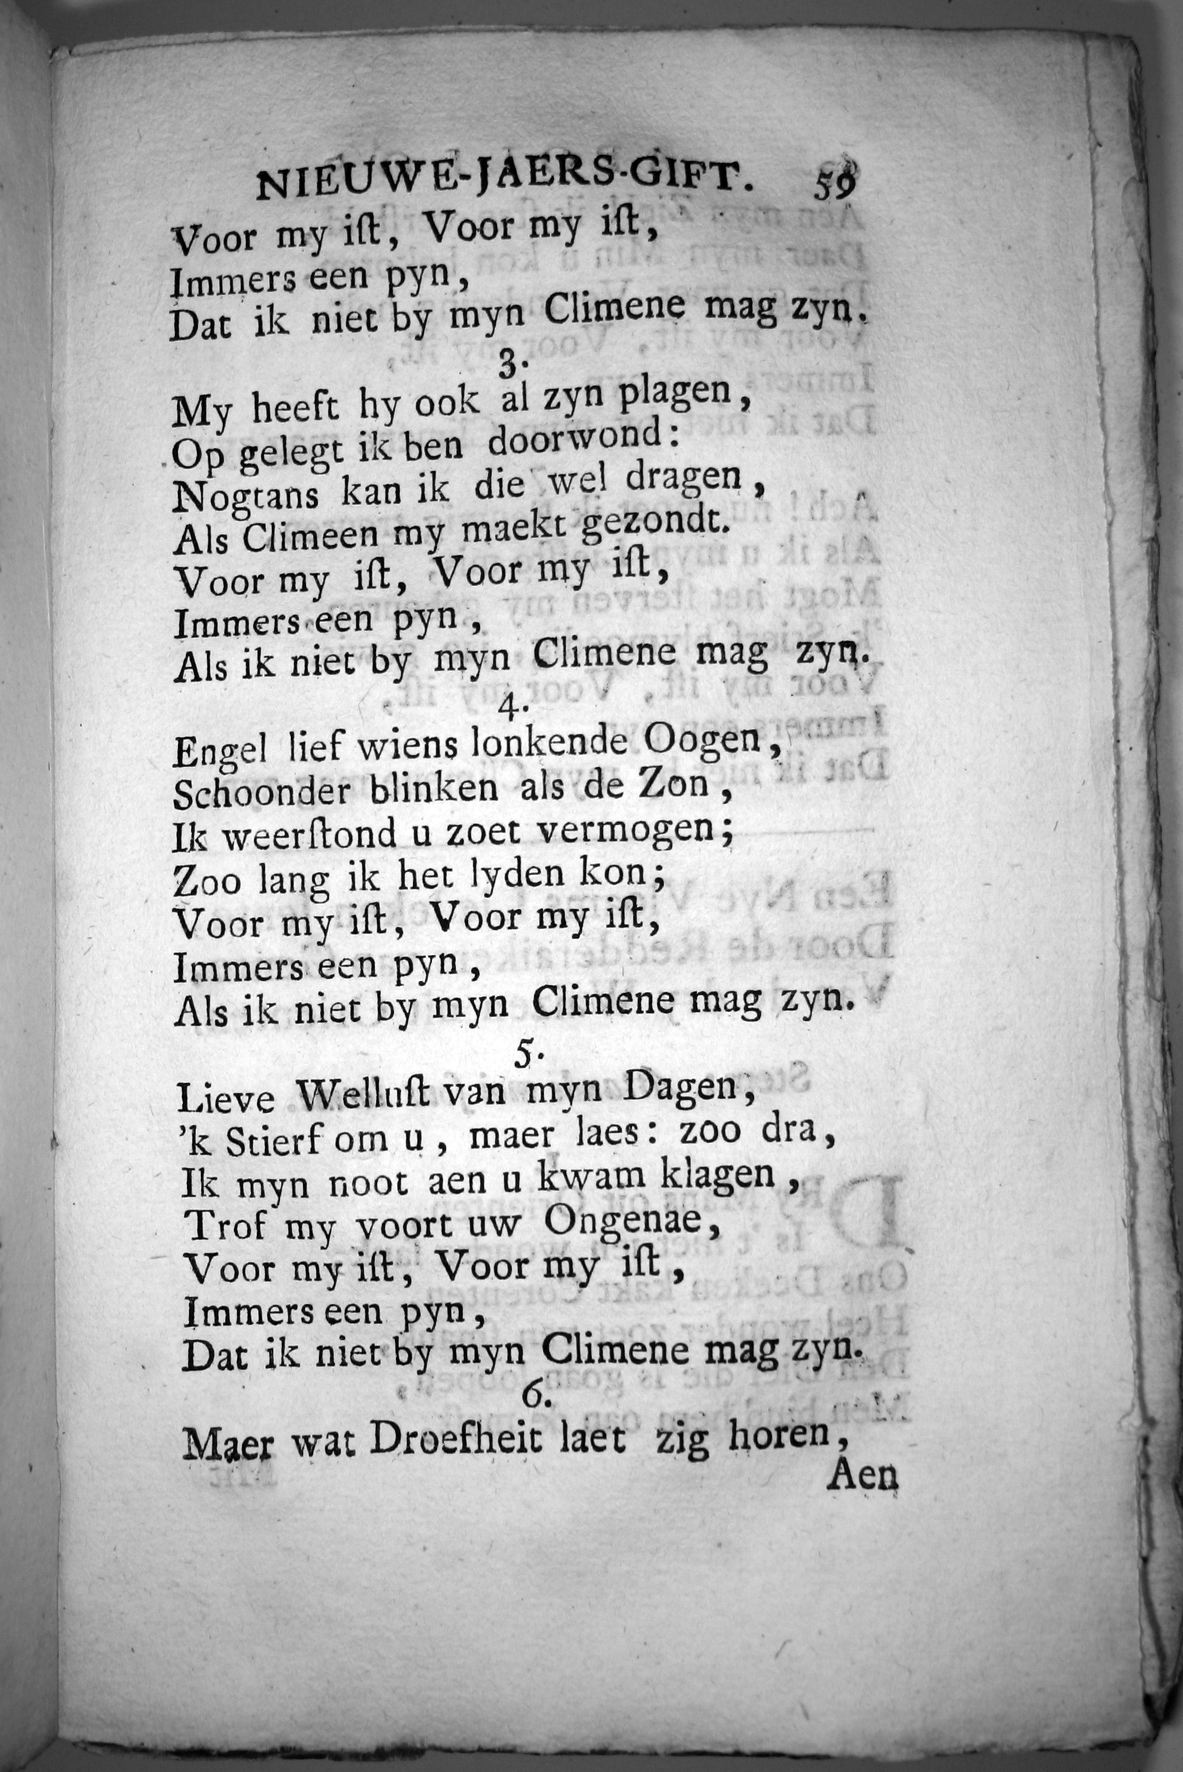 NIEUWE-JAERS-GIFT. 59
Voor my iſt, Voor my iſt,
Immers een pyn,
Dat ik niet by myn Climene mag zyn.
3.
My heeft hy ook al zyn plagen,
Op gelegt ik ben doorwond:
Nogtans kan ik die wel dragen,
Als Climeen my maekt gezondt.
Voor my iſt, Voor my iſt,
Immers een pyn,
Als ik niet by myn Climene mag zyn.
4.
Engel lief wiens lonkende Oogen,
Schoonder blinken als de Zon,
Ik weerſtond u zoet vermogen;
Zoo lang ik het lyden kon;
Voor my iſt, Voor my iſt,
Immers een pyn,
Als ik niet by myn Climene mag zyn.
5.
Lieve Welluſt van myn Dagen,
'k Stierf om u, maer laes: zoo dra,
Ik myn noot aen u kwam klagen,
Trof my voort uw Ongenae,
Voor my iſt, Voor my iſt,
Immers een pyn,
Dat ik niet by myn Climene mag zyn.
6.
Maer wat Droefheit laet zig horen,
Aen